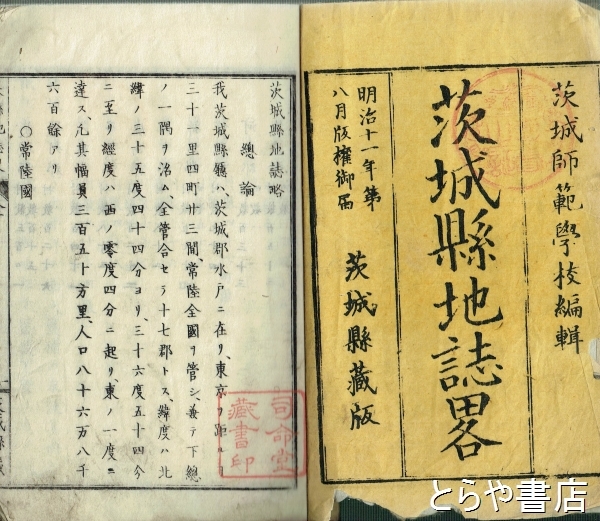 茨城師範學校編輯
茨城縣地誌畧
明治十一年第
八月版權御届
茨城縣藏版
茨城縣地誌略
總論
我茨城縣廳ハ、茨城郡水戸ニ在リ、東京ヲ距ル
三十一里四町廿三間、常陸全國ヲ管シ、兼テ下總
ノ一隅ヲ治ム、全管合セテ十七郡トス、緯度ハ北
緯ノ三十五度四十四分ヨリ、三十六度五十四分
ニ至リ經度ハ西ノ零度四分ニ起リ、東ノ一度ニ
達ス、凡其幅員三百五十方里、人口八十六万八千
六百餘アリ
○常陸國
司命堂
藏書印
とらや書店